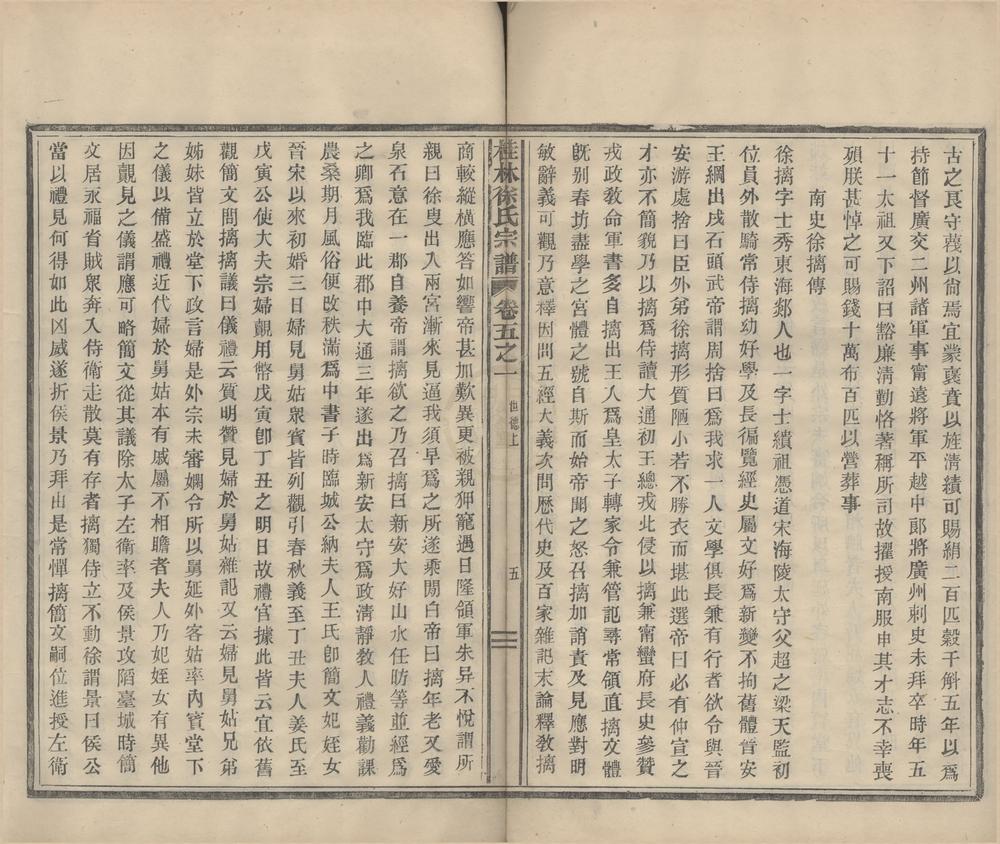 古之良守蔑以尙焉宜蒙襃賁以旌淸績可賜絹二百匹穀千斛五年以爲
持節督廣交二州諸軍事甯遠將軍平越中郞將廣州刺史未拜卒時年五
十一太祖又下詔曰豁廉淸勤恪著稱所司故擢授南服申其才志不幸喪
殞朕甚悼之可賜錢十萬布百匹以營葬事
南史徐摛傳
徐摛字士秀東海郯人也一字士繢祖憑道宋海陵太守父超之梁天監初
位員外散騎常侍摛幼好學及長徧覽經史屬文好爲新變不拘舊體晉安
王綱出戍石頭武帝謂周捨曰爲我求一人文學俱長兼有行者欲令與晉
安游處捨曰臣外弟徐摛形質陋小若不勝衣而堪此選帝曰必有仲宣之
才亦不簡貌乃以摛爲侍讀大通初王總戎此侵以摛兼甯蠻府長史參贊
戎政敎命軍書多自摛出王入爲皇太子轉家令兼管記尋常領直摛文體
旣別春坊盡學之宮體之號自斯而始帝聞之怒召摛加誚責及見應對明
敏辭義可觀乃意釋因問五經大義次問歷代史及百家雜記末論釋敎摛
桂林徐氏宗譜
卷五之一
世德上
五
商較縱橫應答如響帝甚加歎異更被親狎寵遇日隆領軍朱异不悅謂所
親曰徐叟出入兩宮漸來見逼我須早爲之所遂乘閒白帝曰摛年老又愛
泉石意在一郡自養帝謂摛欲之乃召摛曰新安大好山水任昉等並經爲
之卿爲我臨此郡中大通三年遂出爲新安太守爲政淸靜敎人禮義勸課
農桑期月風俗便改秩滿爲中書子時臨城公納夫人王氏卽簡文妃姪女
晉宋以來初婚三日婦見舅姑眾賓皆列觀引春秋義至丁丑夫人姜氏至
戊寅公使大夫宗婦覿用幣戊寅卽丁丑之明日故禮官據此皆云宜依舊
觀簡文問摛摛議曰儀禮云質明贊見婦於舅姑雜記又云婦見舅姑兄弟
姊妹皆立於堂下政言婦是外宗未審嫻令所以舅延外客姑率內賓堂下
之儀以備盛禮近代婦於舅姑本有戚屬不相瞻者夫人乃妃姪女有異他
因覿見之儀謂應可略簡文從其議除太子左衛率及侯景攻陷臺城時簡
文居永福省賊眾奔入侍衛走散莫有存者摛獨侍立不動徐謂景曰侯公
當以禮見何得如此凶威遂折侯景乃拜出是常憚摛簡文嗣位進授左衛